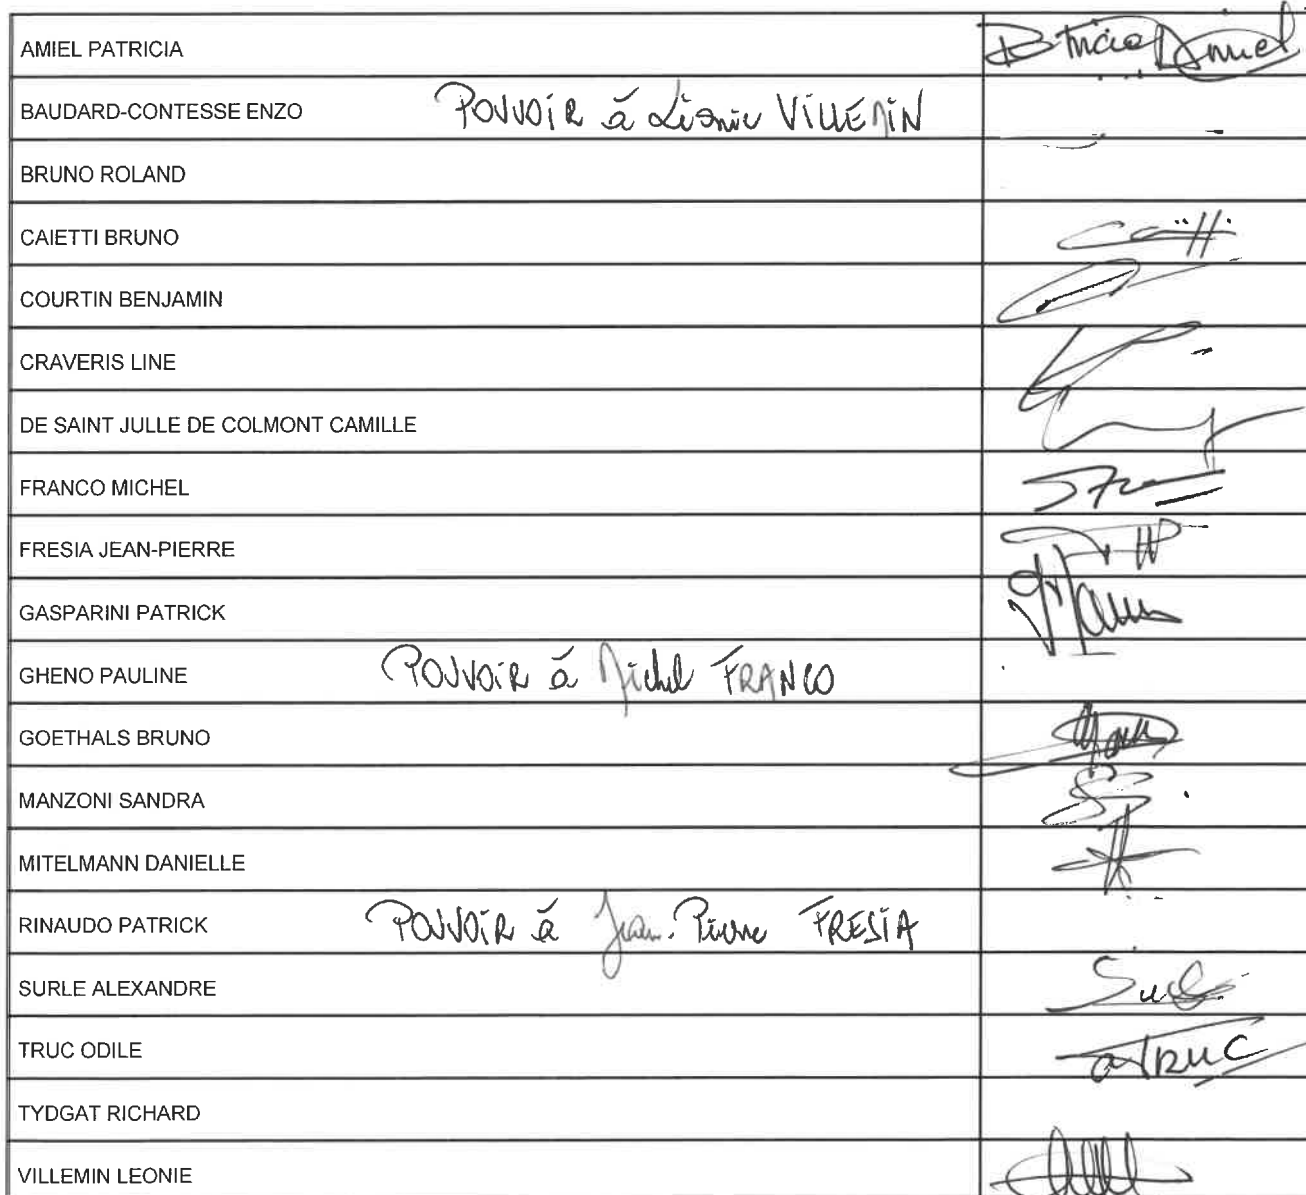 AMIEL PATRICIA Patricia Amiel
BAUDARD-CONTESSE ENZO POUVOIR à Léonie VILLEMIN
BRUNO ROLAND
CAIETTI BRUNO
COURTIN BENJAMIN
CRAVERIS LINE
DE SAINT JULLE DE COLMONT CAMILLE
FRANCO MICHEL
FRESIA JEAN-PIERRE
GASPARINI PATRICK
GHENO PAULINE POUVOIR à Michel FRANCO
GOETHALS BRUNO
MANZONI SANDRA
MITELMANN DANIELLE
RINAUDO PATRICK POUVOIR à Jean-Pierre FRESIA
SURLE ALEXANDRE
TRUC ODILE TRUC
TYDGAT RICHARD
VILLEMIN LEONIE